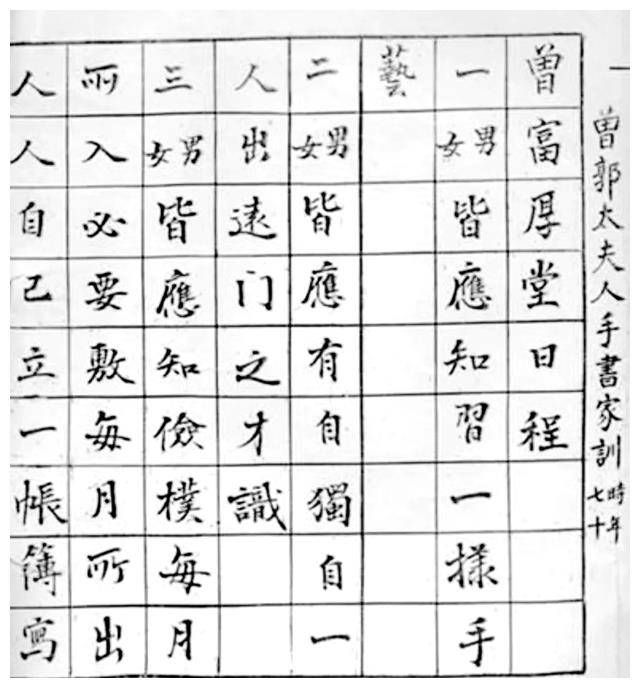 曾郭太夫人手書家訓時年七十
曾富厚堂日程
一男女皆應知習一樣手
藝
二男女皆應有自獨自一
人出遠门之才識
三男女皆應知儉樸每月
所入必要敷每月所出
人人自己立一帳簿寫